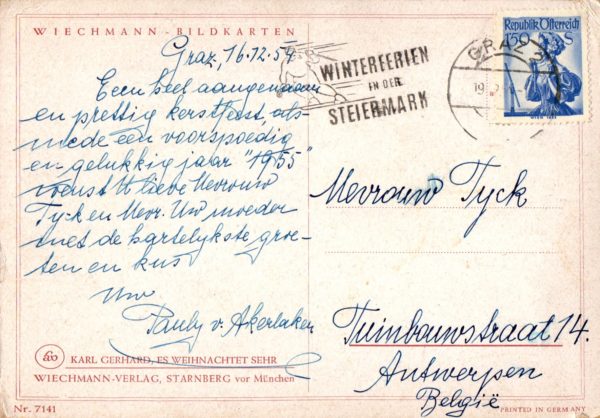 WIECHMANN - BILDKARTEN
Graz, 16.12.54
Een heel aangenaam
en prettig kerstfeest, als-
mede een voorspoedig
en gelukkig jaar "1955"
wenst U lieve Mevrouw
Tyck en Mevr. Uw moeder
met de hartelykste groe-
ten en kus
Uw
Pauly v. Akerlaken
KARL GERHARD, ES WEIHNACHTET SEHR
WIECHMANN-VERLAG, STARNBERG vor München
Nr. 7141
WINTERFERIEN
IN DER
STEIERMARK
GRAZ
Republik Österreich
1.50 S
Mevrouw Tyck
Tuinbouwstraat 14.
Antwerpen
België
PRINTED IN GERMANY